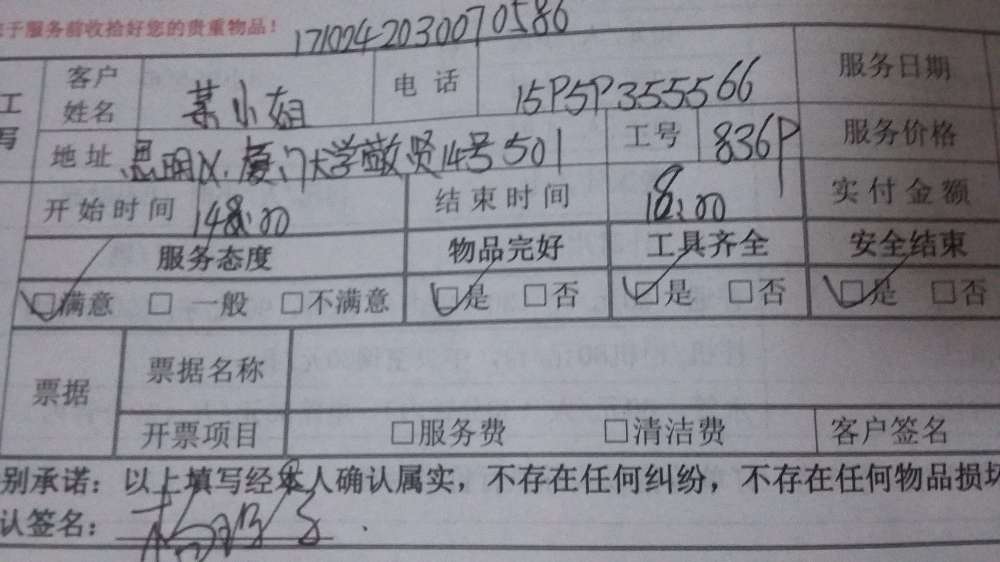 于服务前收拾好您的贵重物品！
1710242030070586
工 客户姓名 某小姐 电话 15P5P355566 服务日期
写 地址 思明区.厦门大学敬贤14号501 工号 836P 服务价格
开始时间 14:00 结束时间 18:00 实付金额
服务态度 物品完好 工具齐全 安全结束
☑满意 □ 一般 □不满意 ☑是 □否 ☑是 □否 ☑是 □否
票据 票据名称
开票项目 □服务费 □清洁费 客户签名
别承诺：以上填写经本人确认属实，不存在任何纠纷，不存在任何物品损坏
认签名：